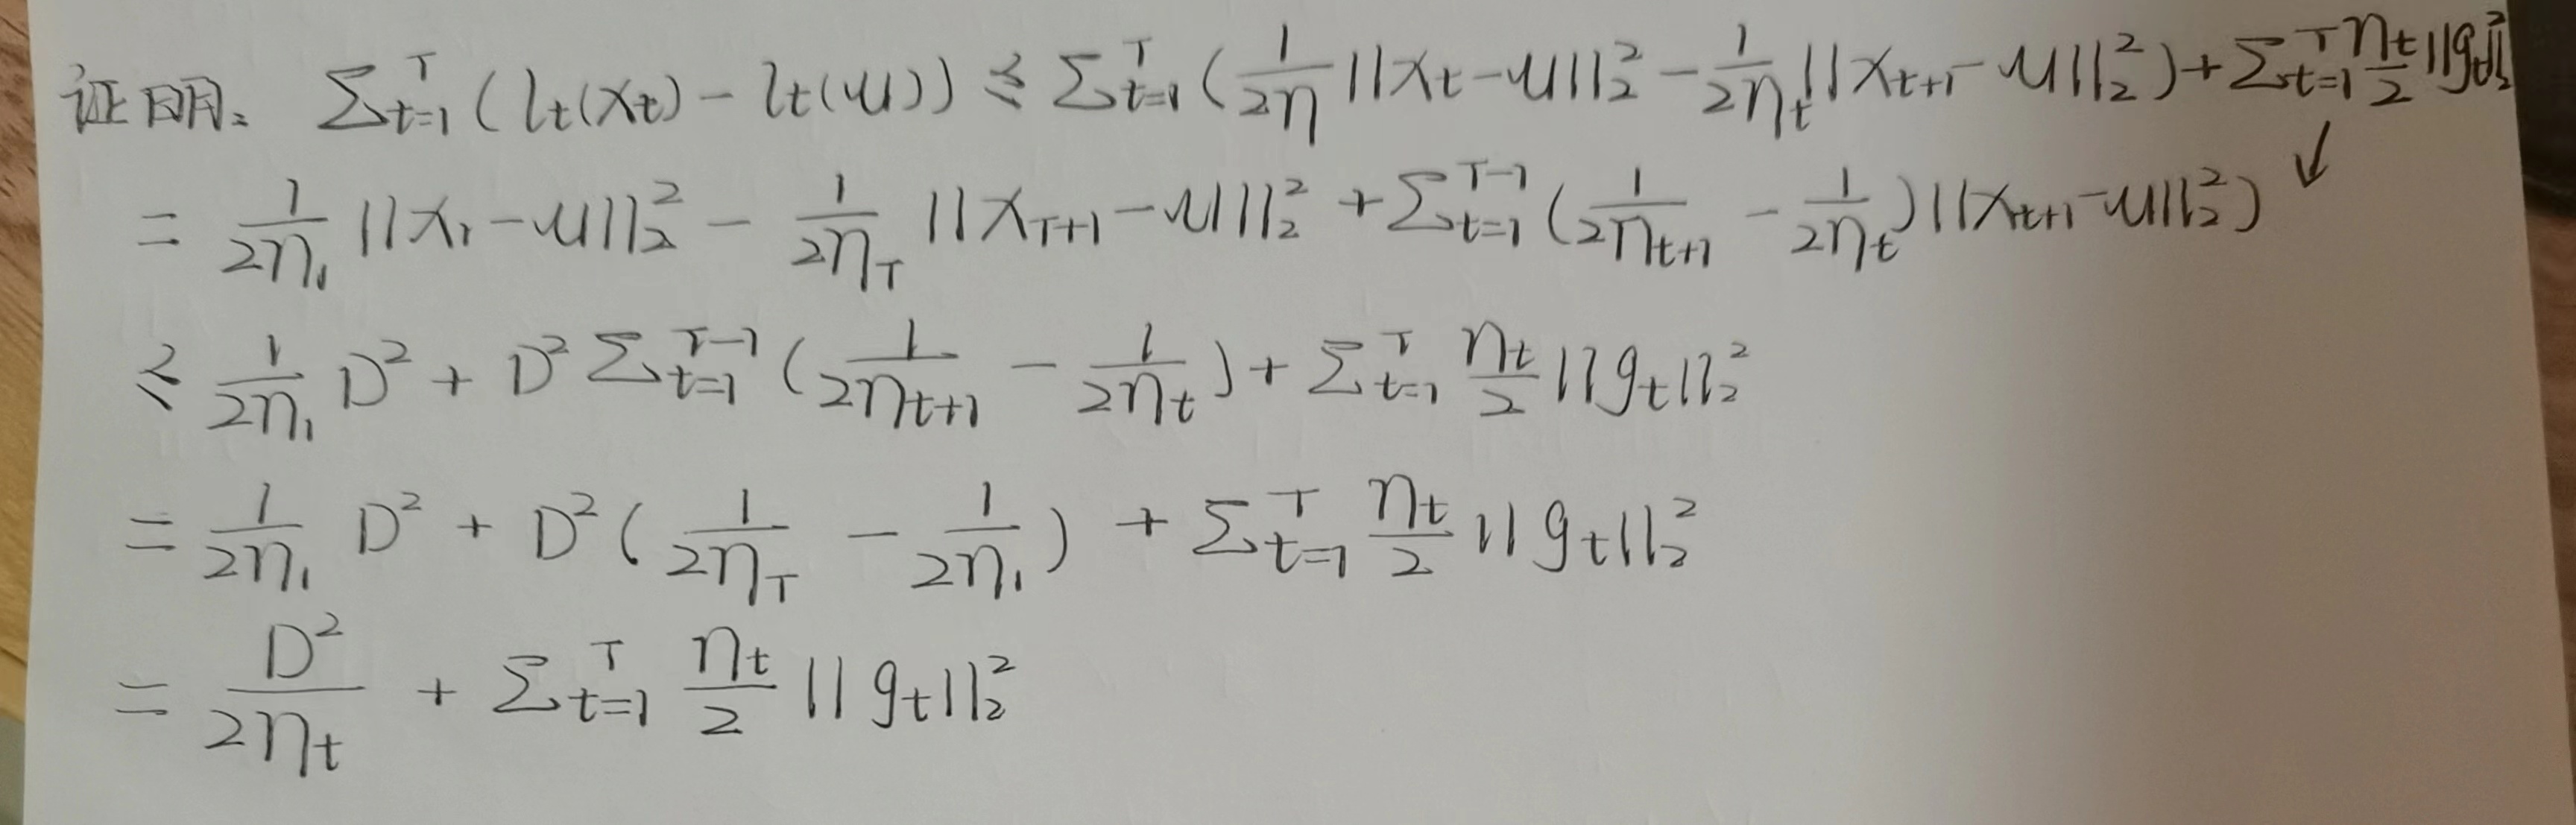 证明: $\sum_{t=1}^{T} (l_t(x_t) - l_t(u)) \leq \sum_{t=1}^{T} (\frac{1}{2\eta} ||x_t - u||_2^2 - \frac{1}{2\eta_t} ||x_{t+1} - u||_2^2) + \sum_{t=1}^{T} \frac{\eta_t}{2} ||g_t||_2^2$ ↓
$= \frac{1}{2\eta_1} ||x_1 - u||_2^2 - \frac{1}{2\eta_T} ||x_{T+1} - u||_2^2 + \sum_{t=1}^{T-1} (\frac{1}{2\eta_{t+1}} - \frac{1}{2\eta_t}) ||x_{t+1} - u||_2^2)$
$\leq \frac{1}{2\eta_1} D^2 + D^2 \sum_{t=1}^{T-1} (\frac{1}{2\eta_{t+1}} - \frac{1}{2\eta_t}) + \sum_{t=1}^{T} \frac{\eta_t}{2} ||g_t||_2^2$
$= \frac{1}{2\eta_1} D^2 + D^2 (\frac{1}{2\eta_T} - \frac{1}{2\eta_1}) + \sum_{t=1}^{T} \frac{\eta_t}{2} ||g_t||_2^2$
$= \frac{D^2}{2\eta_t} + \sum_{t=1}^{T} \frac{\eta_t}{2} ||g_t||_2^2$